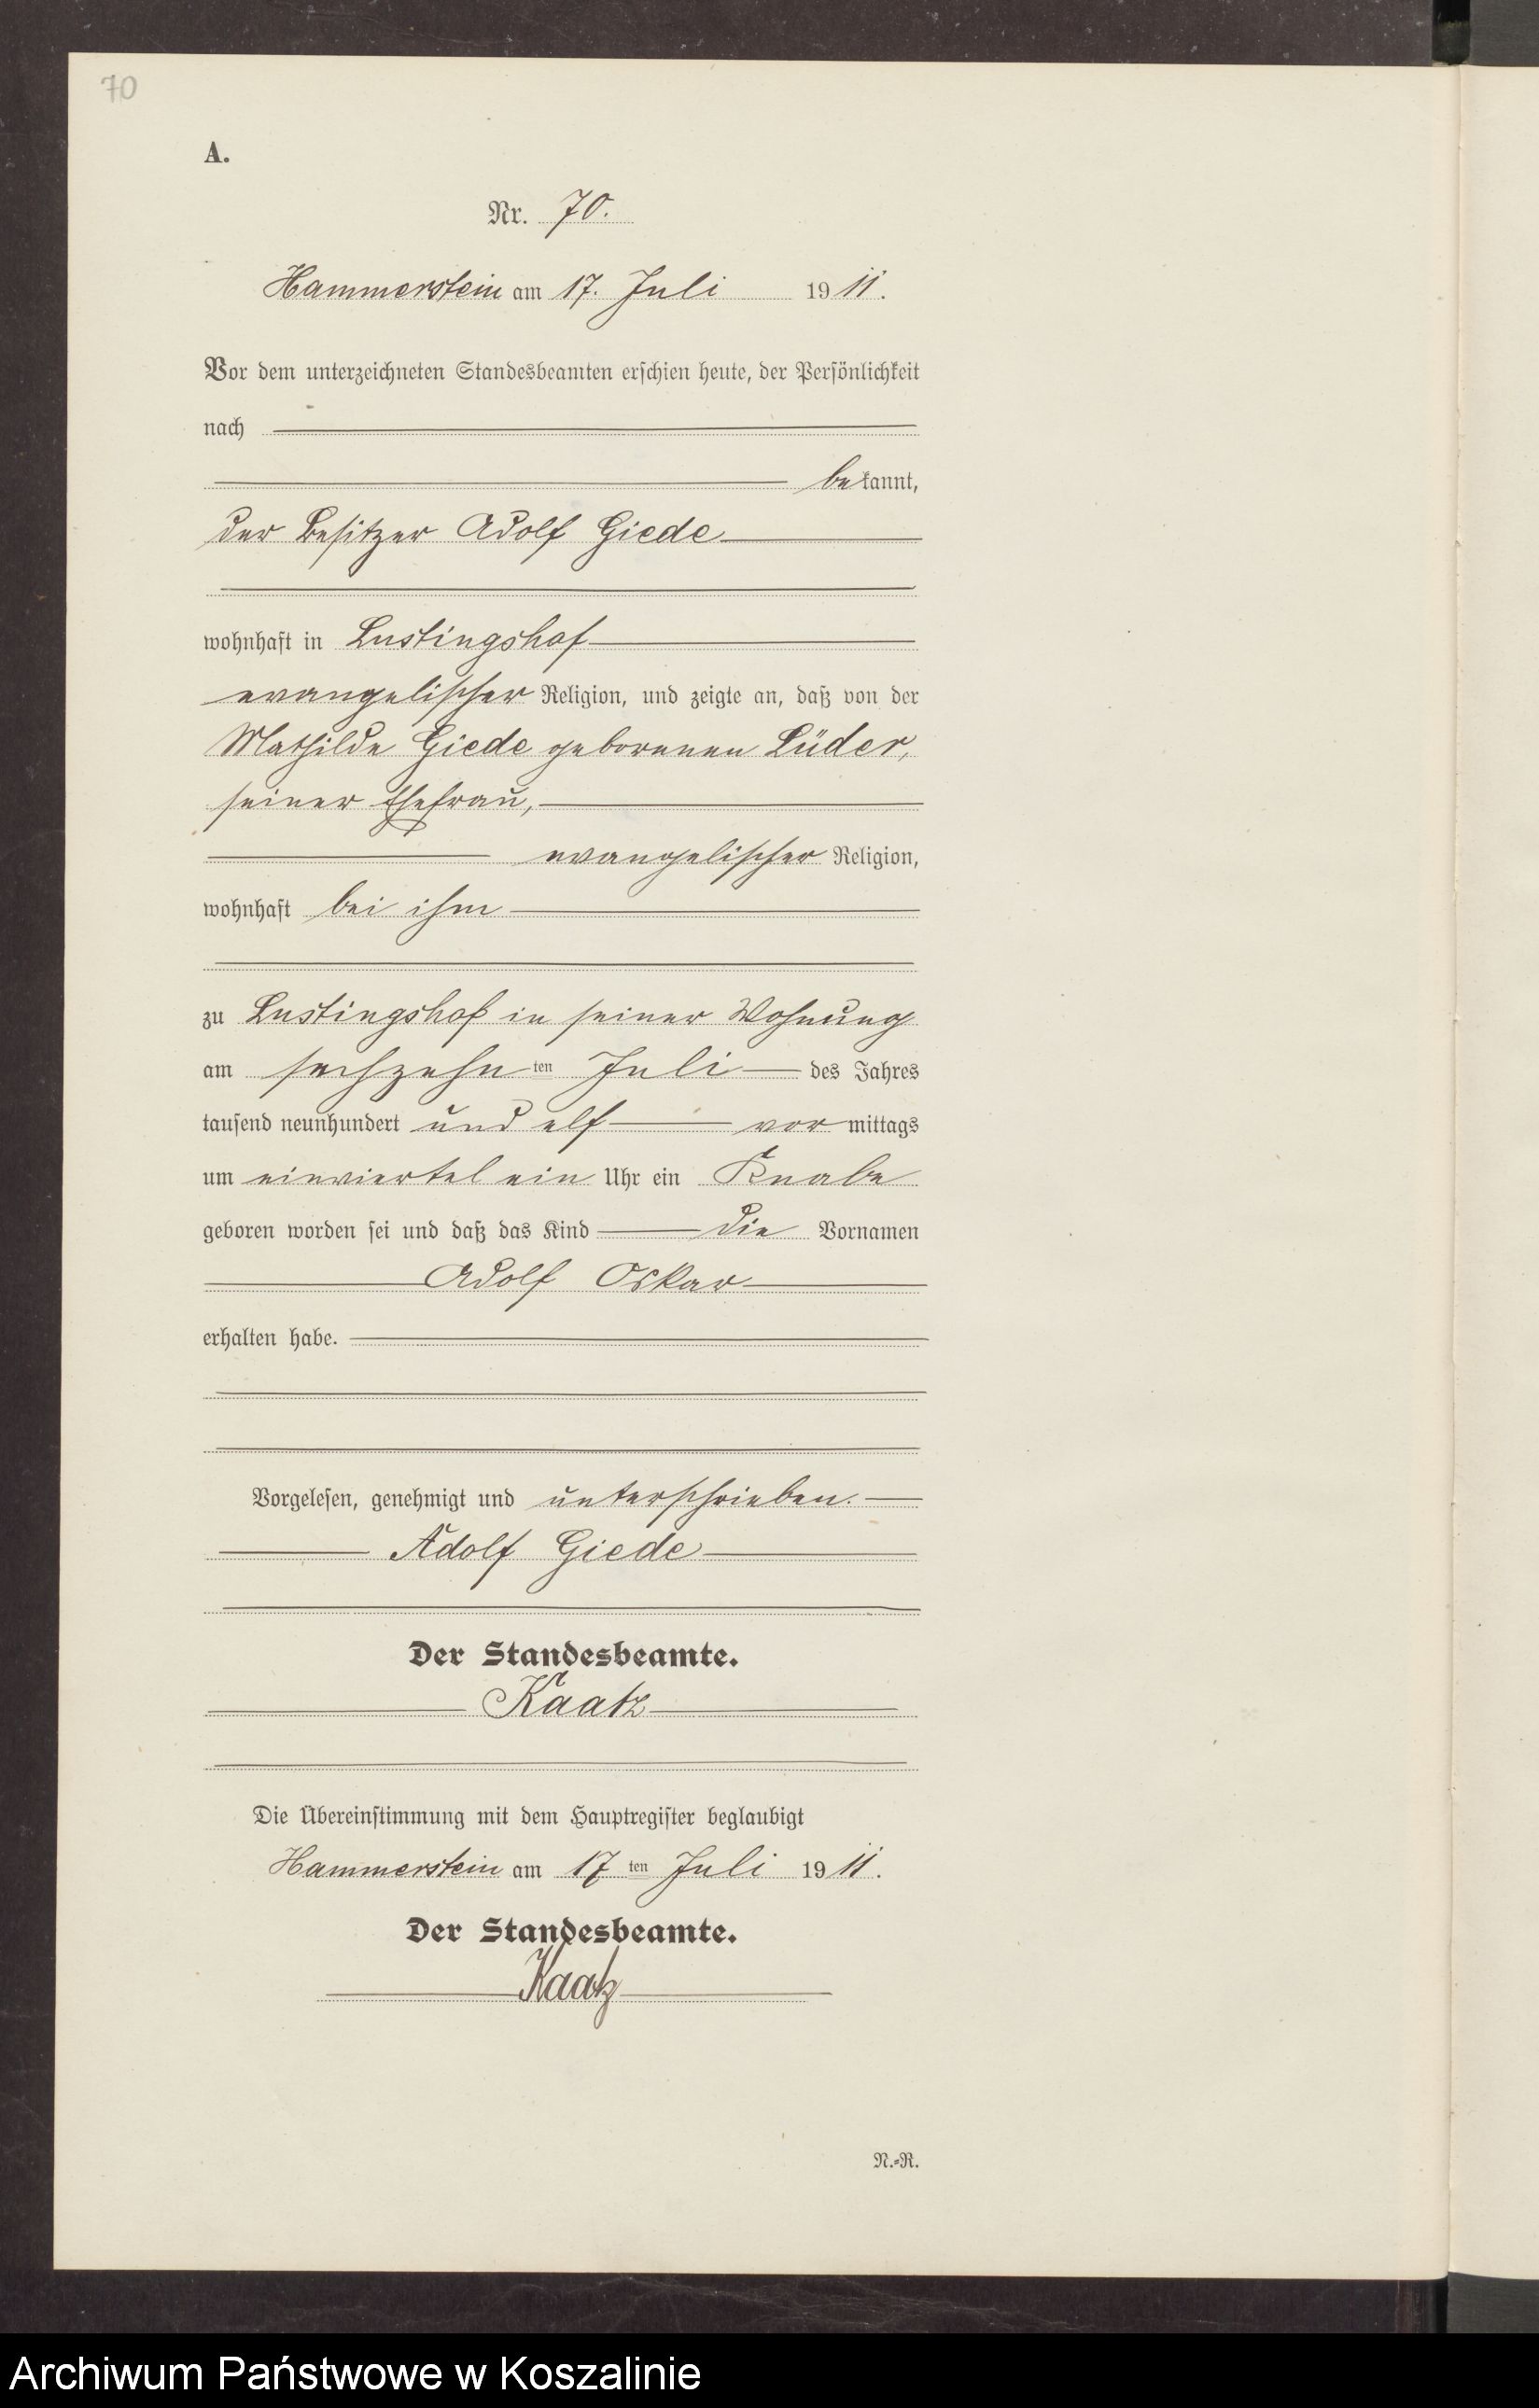 70
A.
Nr. 70.
Hammerstein am 17. Juli 1911.
Vor dem unterzeichneten Standesbeamten erschien heute, der Persönlichkeit
nach
bekannt,
der Besitzer Adolf Giede
wohnhaft in Lustingshof
evangelischer Religion, und zeigte an, daß von der
Mathilde Giede geborenen Lüder,
seiner Ehefrau,
evangelischer Religion,
wohnhaft bei ihm
zu Lustingshof in seiner Wohnung
am sechzehnten Juli des Jahres
tausend neunhundert und elf vormittags
um einviertel ein Uhr ein Knabe
geboren worden sei und daß das Kind die Vornamen
Adolf Oskar
erhalten habe.
Vorgelesen, genehmigt und unterschrieben.
Adolf Giede
Der Standesbeamte.
Kaatz
Die Übereinstimmung mit dem Hauptregister beglaubigt
Hammerstein am 17ten Juli 1911.
Der Standesbeamte.
Kaatz
N.=R.
Archiwum Państwowe w Koszalinie